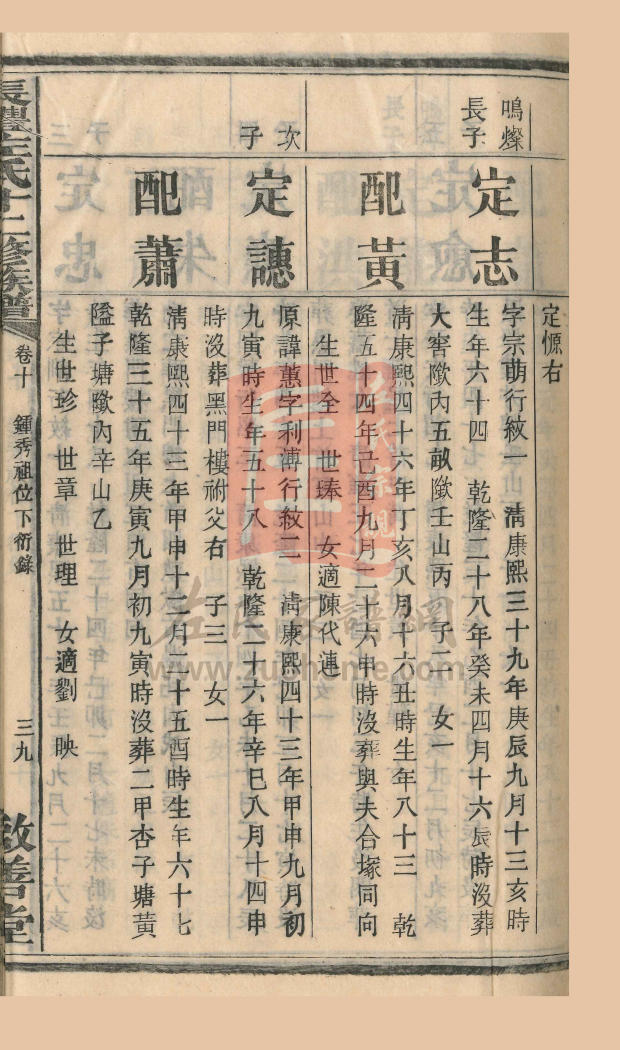 定愿右
鳴燦
長子
定志
字宗萌行紋一 清康熙三十九年庚辰九月十三亥時
生年六十四 乾隆二十八年癸未四月十六辰時沒葬
大窖歞內五畝歞壬山丙 子二 女一
配黃
清康熙四十六年丁亥八月十六丑時生年八十三 乾
隆五十四年己酉九月二十六申時沒葬與夫合塚同向
生世全 世瑧 女適陳代蓮
次
子
定譓
原諱蕙字利溥行紋二 清康熙四十三年甲申九月初
九寅時生年五十八 乾隆二十六年辛巳八月十四申
時沒葬黑門樓祔父右 子三 女一
配蕭
清康熙四十三年甲申十二月二十五酉時生年六十七
乾隆三十五年庚寅九月初九寅時沒葬二甲杏子塘黃
隘子塘歞內辛山乙
生世珍 世章 世理 女適劉 映
長澧左氏十二修族譜 卷十 鍾秀祖位下衍錄 三九 敦善堂
左氏宗親
左氏家譜網
www.zuohome.com